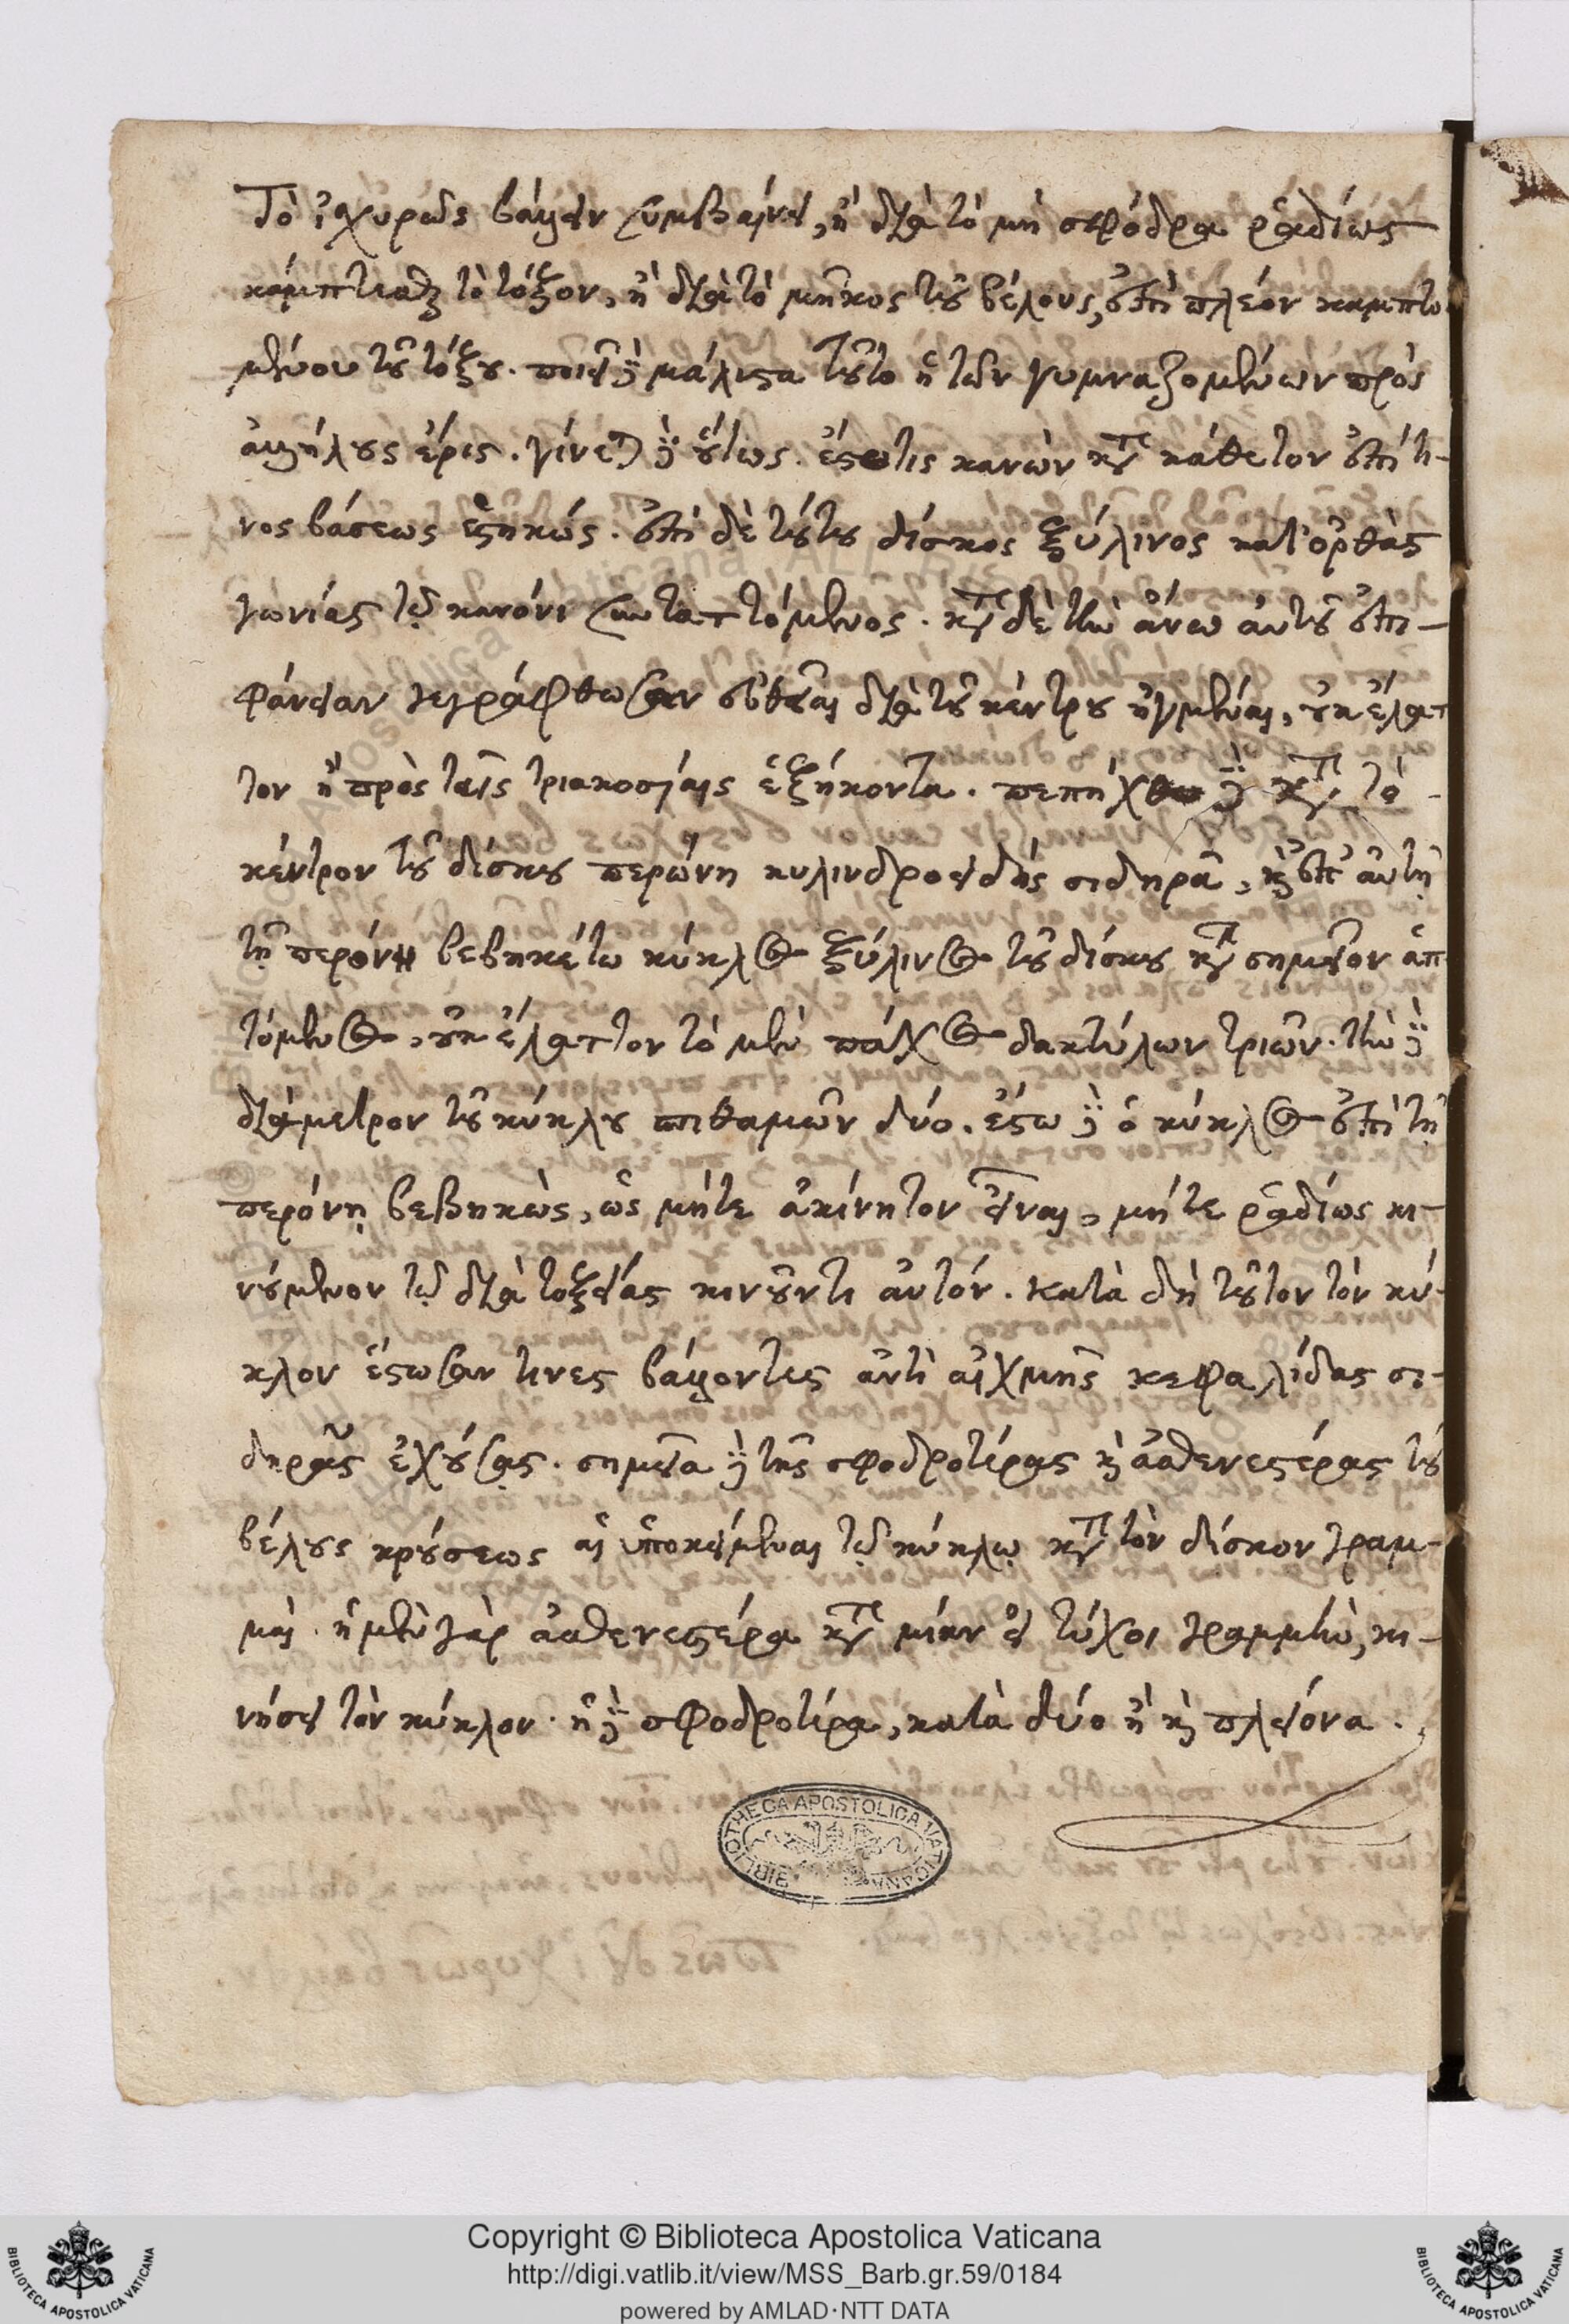 Τὸ ἰσχυρῶς βάλλειν συμβαίνει, ἢ διὰ τὸ μὴ σφόδρα ῥαδίως
κάμπτεσθαι τὸ τόξον, ἢ διὰ τὸ μῆκος τοῦ βέλους, ἐπὶ πλέον καμπτο
μένου τοῦ τόξου. ποιεῖ δὲ μάλιστα τοῦτο ἡ τῶν γυμναζομένων πρὸς
ἀλλήλους ἔρις. γίνεται δὲ οὕτως. ἔστω τις κανὼν κατὰ κάθετον ἐπί τι-
νος βάσεως ἑστηκώς. ἐπὶ δὲ τούτου δίσκος ξύλινος κατ' ὀρθὰς
γωνίας τῷ κανόνι συναπτόμενος. κατὰ δὲ τὴν ἄνω αὐτοῦ ἐπι-
φάνειαν γεγράφθωσαν εὐθεῖαι διὰ τοῦ κέντρου ἠγμέναι, οὐκ ἔλατ
τον ἢ πρὸς ταῖς τριακοσίαις ἑξήκοντα. πεπήχθω δὲ κατὰ τὸ
κέντρον τοῦ δίσκου περώνη κυλινδροειδὴς σιδηρᾶ, καὶ ἐπ' αὐτῇ
τῇ περόνῃ βεβηκέτω κύκλος ξύλινος τοῦ δίσκου κατὰ σημεῖον ἁπ
τόμενος, οὐκ ἔλαττον τὸ μὲν πάχος δακτύλων τριῶν. τὴν δὲ
διάμετρον τοῦ κύκλου σπιθαμῶν δύο. ἔστω δὲ ὁ κύκλος ἐπὶ τῇ
περόνῃ βεβηκὼς, ὡς μήτε ἀκίνητον εἶναι, μήτε ῥαδίως κι-
νούμενον τῷ διὰ τοξείας κινοῦντι αὐτόν. κατὰ δὴ τοῦτον τὸν κύ-
κλον ἔστωσάν τινες βάλλοντες ἀντὶ αἰχμῆς κεφαλίδας σι-
δηρᾶς ἐχούσας. σημεῖα δὲ τῆς σφοδροτέρας καὶ ἀσθενεστέρας τοῦ
βέλους κρούσεως αἱ ὑποκείμεναι τῷ κύκλῳ κατὰ τὸν δίσκον γραμ-
μαί. ἡ μὲν γὰρ ἀσθενεστέρα κατὰ μίαν εἰ τύχοι γραμμὴν, κι-
νήσει τὸν κύκλον. ἡ δὲ σφοδροτέρα, κατὰ δύο ἢ καὶ πλείονα.
BIBLIOTHECA APOSTOLICA VATICANA
Copyright © Biblioteca Apostolica Vaticana
http://digi.vatlib.it/view/MSS_Barb.gr.59/0184
powered by AMLAD·NTT DATA
BIBLIOTECA APOSTOLICA VATICANA
BIBLIOTECA APOSTOLICA VATICANA